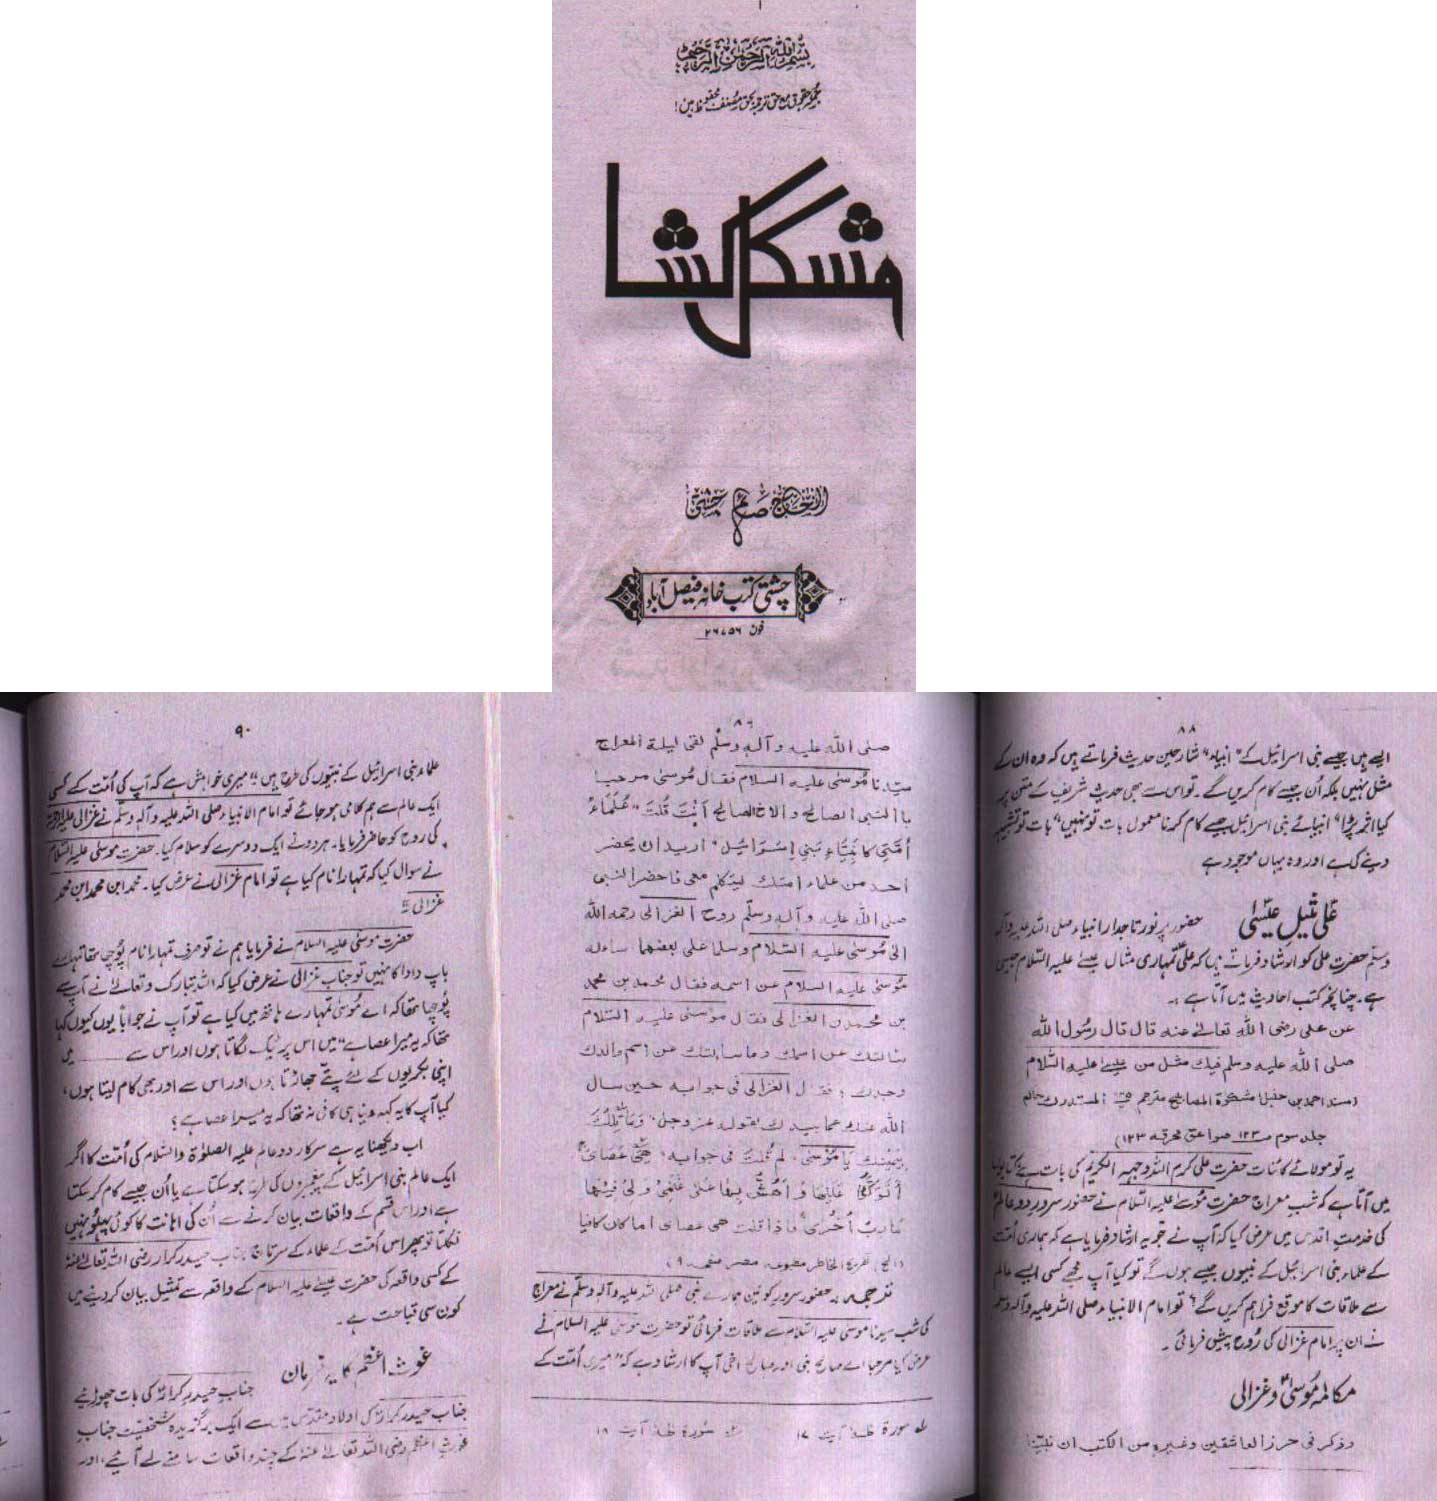 بسم اللہ الرحمن الرحیم
جملہ حقوق و حق ترجمہ بحق مصنف محفوظ ہیں!
مشکل کشا
الحاج صائم چشتی
چشتی کتب خانہ فیصل آباد
فون ۲۶۷۵۶
۸۸
ایسے ہیں جیسے بنی اسرائیل کے "انبیاء" شارحین حدیث فرماتے ہیں کہ وہ ان کے
مثل نہیں بلکہ اُن جیسے کام کریں گے۔ تو اس سے بھی حدیث شریف کے متن پر
کیا اثر پڑا" انبیائے بنی اسرائیل جیسے کام کرنا معمول بات تو نہیں" بات تو تشبیہہ
دینے کی ہے اور وہ یہاں موجود ہے
علی مثیلِ عیسیٰ
حضور پر نور تاجدار انبیاء صلی اللہ علیہ وآلہ
وسلم حضرت علی کو ارشاد فرماتے ہیں کہ علی تمہاری مثال عیسےٰ علیہ السلام جیسی
ہے۔ چنانچہ کتب احادیث میں آتا ہے :۔
عن علی رضی اللہ تعالےٰ عنہ قال قال رسُول اللہ
صلی اللہ علیہ وسلم فیک مثل من عیسےٰ علیہ السّلام
(مسند احمد بن حنبل، مشکوٰة المصابیح مترجم المستدرک حاکم
جلد سوم ص ۱۲۳ صواعق محرقہ ۱۲۳)
یہ تو مولائے کائنات حضرت علی کرم اللہ وجہہ الکریم کی بات ہے کتابوں
میں آتا ہے کہ شب معراج حضرت مُوسےٰ علیہ السلام نے حضور سرور دو عالم
کی خدمتِ اقدس میں عرض کیا کہ آپ نے جو یہ ارشاد فرمایا ہے کہ ہماری اُمّت
کے علماء بنی اسرائیل کے نبیوں جیسے ہوں گے تو کیا آپ مجھے کسی ایسے عالم
سے ملاقات کا موقع فراہم کریں گے؟ تو امام الانبیاء صلی اللہ علیہ وآلہ وسلم
نے ان پر امام غزالی کی رُوح پیش فرمائی۔
مکالمہ مُوسیٰ و غزالی
وذکر فی حرز العاشقین وغیرہ من الکتب ان نبینا
۸۹
صلی اللہ علیہ وآلہ وسلّم لقی لیلة المعراج
سیّدنا مُوسیٰ علیہ السلام فقال مُوسیٰ مرحبا
باالنبی الصالح والاخ الصالح اَنْتَ قُلْتَ "عُلَمَاءُ
اُمَّتِی کَاَنْبِیَاءِ بَنِی اِسْرَائِیْلَ" اریدان یحضر
احد من علماء امتک لیتکلم معی فاحضر النبی
صلی اللہ علیہ وآلہ وسلّم روح الغزالی رحمہ اللہ
الیٰ مُوسیٰ علیہ السّلام وسلما علی بعضھما ساءلہ
مُوسٰی علیہ السلام عن اسمہ فقال محمد بن محمد
بن محمد ن الغزالی فقال مُوسیٰ علیہ السّلام
سالتک عن اسمک وما سالتک عن اسم والدک
وجدک ؛ فقال الغزالی فی جوابہ حین سال
اللہ عنک مجاببدک بقولہ عزوجل "وَمَا تِلْکَ
بِیَمِیْنِکَ یَا مُوْسٰی" لم قُلْتَ فی جوابہ "ھِیَ عَصَایَ
اَتَوَکَّؤُا عَلَیْھَا وَاَھُشُّ بِھَا عَلٰی غَنَمِیْ وَلِیَ فِیْھَا
مَآرِبُ اُخْرٰی" فاذا قلت ھی عصای اما کان کافیا
(الخ تفریح الخاطر مطبوعہ مصر صفحہ ۹)
ترجمہ :۔ حضور سرور کونین ہمارے نبی صلی اللہ علیہ وآلہ وسلّم نے معراج
کی شب سیدنا موسیٰ علیہ السّلام سے ملاقات فرمائی تو حضرت موسیٰ علیہ السلام نے
عرض کیا مرحبا اے صالح نبی اور صالح اخی آپ کا ارشاد ہے کہ "میری اُمّت کے
سورة طٰہٰ آیت ۱۷ سُورة طٰہٰ آیت ۱۸
۹۰
علماء بنی اسرائیل کے نبیوں کی طرح ہیں" میری خواہش ہے کہ آپ کی اُمّت کے کسی
ایک عالم سے ہم کلامی ہو جائے تو امام الانبیاء صلی اللہ علیہ وآلہ وسلّم نے غزالی
کی روح کو حاضر فرمایا۔ ہر دو نے ایک دوسرے کو سلام کیا۔ حضرت موسیٰ علیہ السلام
نے سوال کیا کہ تمہارا نام کیا ہے تو امام غزالی نے عرض کیا۔ محمد ابن محمد ابن محمد
غزالی"
حضرت موسیٰ علیہ السلام نے فرمایا ہم نے تو صرف تمہارا نام پُوچھا تھا تمہارے
باپ دادا کا نہیں تو جناب غزالی نے عرض کیا کہ اللہ تبارک وتعالےٰ نے آپ سے
پُوچھا تھا کہ اے موسیٰ تمہارے ہاتھ میں کیا ہے تو آپ نے جواباً یوں کیوں کہا
تھا کہ یہ میرا عصا ہے "میں اس پر ٹیک لگاتا ہوں اور اس سے میں
اپنی بکریوں کے لئے پتے جھاڑتا ہوں اور اس سے اور بھی کام لیتا ہوں،
کیا آپ کا یہ کہہ دینا ہی کافی نہ تھا کہ یہ میرا عصا ہے؟
اب دیکھنا یہ ہے سرکار دو عالم علیہ الصلوٰة والسّلام کی اُمّت کا اگر
ایک عالم بنی اسرائیل کے پیغمبروں کی طرح ہو سکتا ہے یا اُن جیسے کام کر سکتا
ہے اور اس قسم کے واقعات بیان کرنے سے اُن کی اہانت کا کوئی پہلو نہیں
نکلتا تو پھر اس اُمّت کے علماء کے سرتاج جناب حیدر کرار رضی اللہ تعالےٰ عنہ
کے کسی واقعہ کی حضرت عیسےٰ علیہ السلام کے واقعہ سے تمثیل بیان کر دینے میں
کون سی قباحت ہے۔
غوث اعظم کا یہ فرمان
جناب حیدر کرار کی بات چھوڑیئے
جناب حیدر کرار کی اولاد مقدس میں سے ایک برگزیدہ شخصیت جناب
غوث اعظم رضی اللہ تعالےٰ عنہ کے چند واقعات سامنے لے آئیے، اور